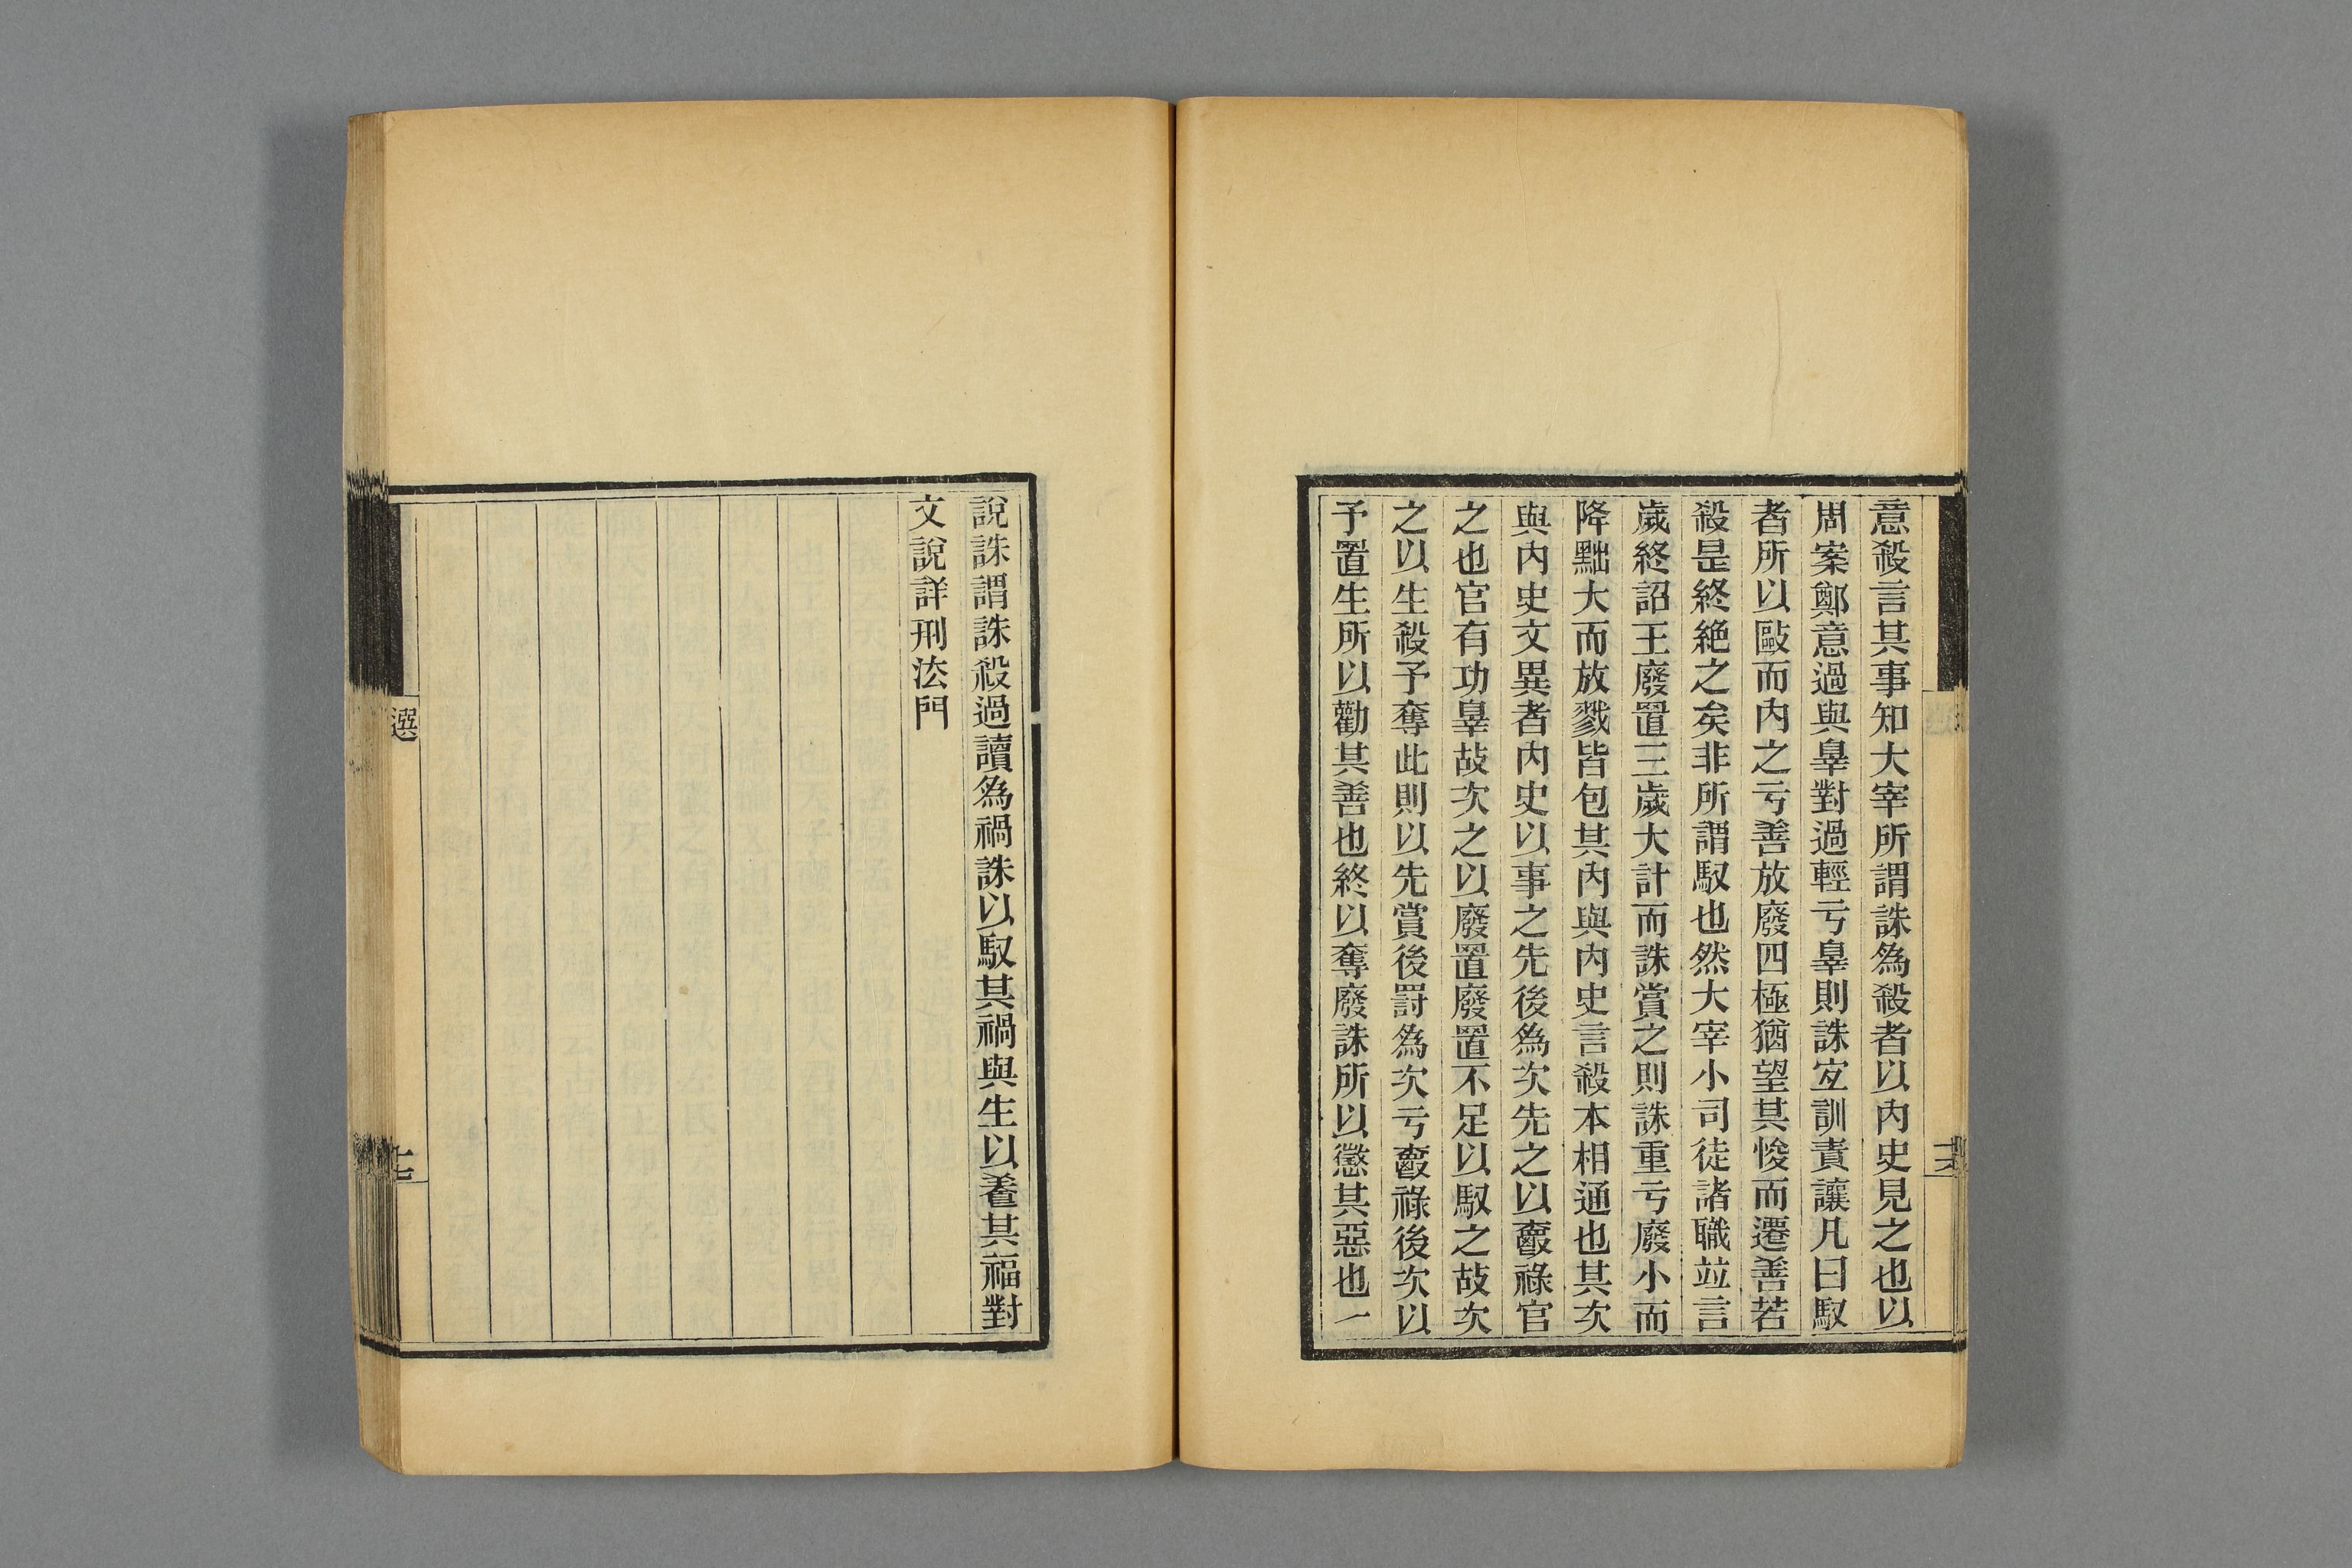 意殺言其事知大宰所謂誅爲殺者以內史見之也以
周案鄭意過與辠對過輕亏辠則誅宐訓責讓凡曰馭
者所以敺而內之亏善放廢四極猶望其悛而遷善若
殺是終絶之矣非所謂馭也然大宰小司徒諸職竝言
歲終詔王廢置三歲大計而誅賞之則誅重亏廢小而
降黜大而放戮皆包其內與內史言殺本相通也其次
與內史文異者內史以事之先後爲次先之以𣝣祿官
之也官有功辠故次之以廢置廢置不足以馭之故次
之以生殺予奪此則以先賞後罰爲次亏𣝣祿後次以
予置生所以勸其善也終以奪廢誅所以懲其惡也一
十六
說誅謂誅殺過讀爲禍誅以馭其禍與生以養其福對
文說詳刑法門
選
十七